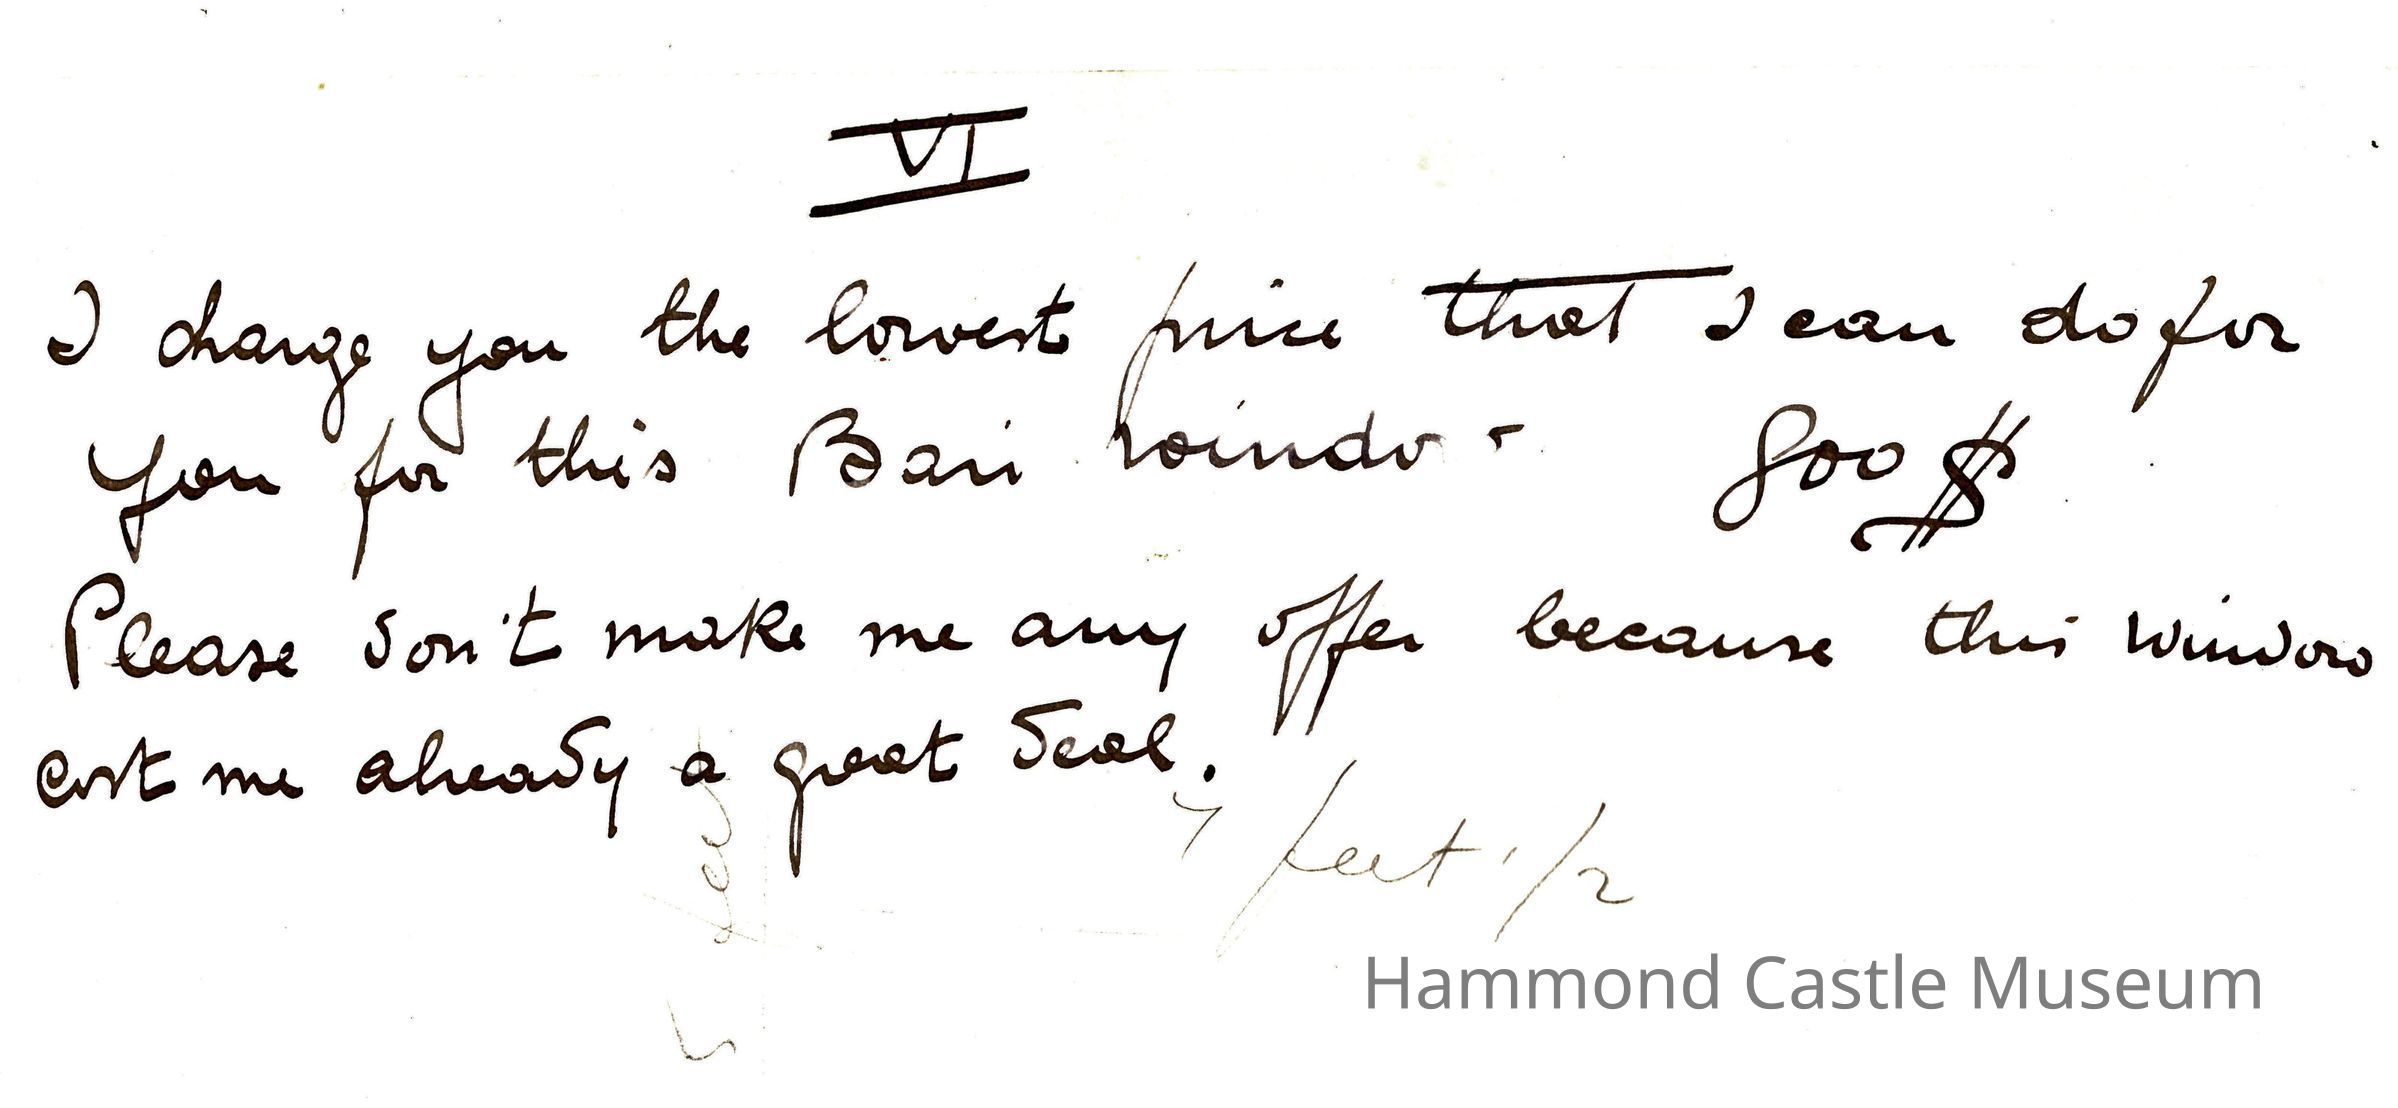 VI
I charge you the lowest price that I can do for
you for this Bari window - 800 $
Please don't make me any offer because this window
cost me already a great deal.
7 feet 1/2
feet
Hammond Castle Museum